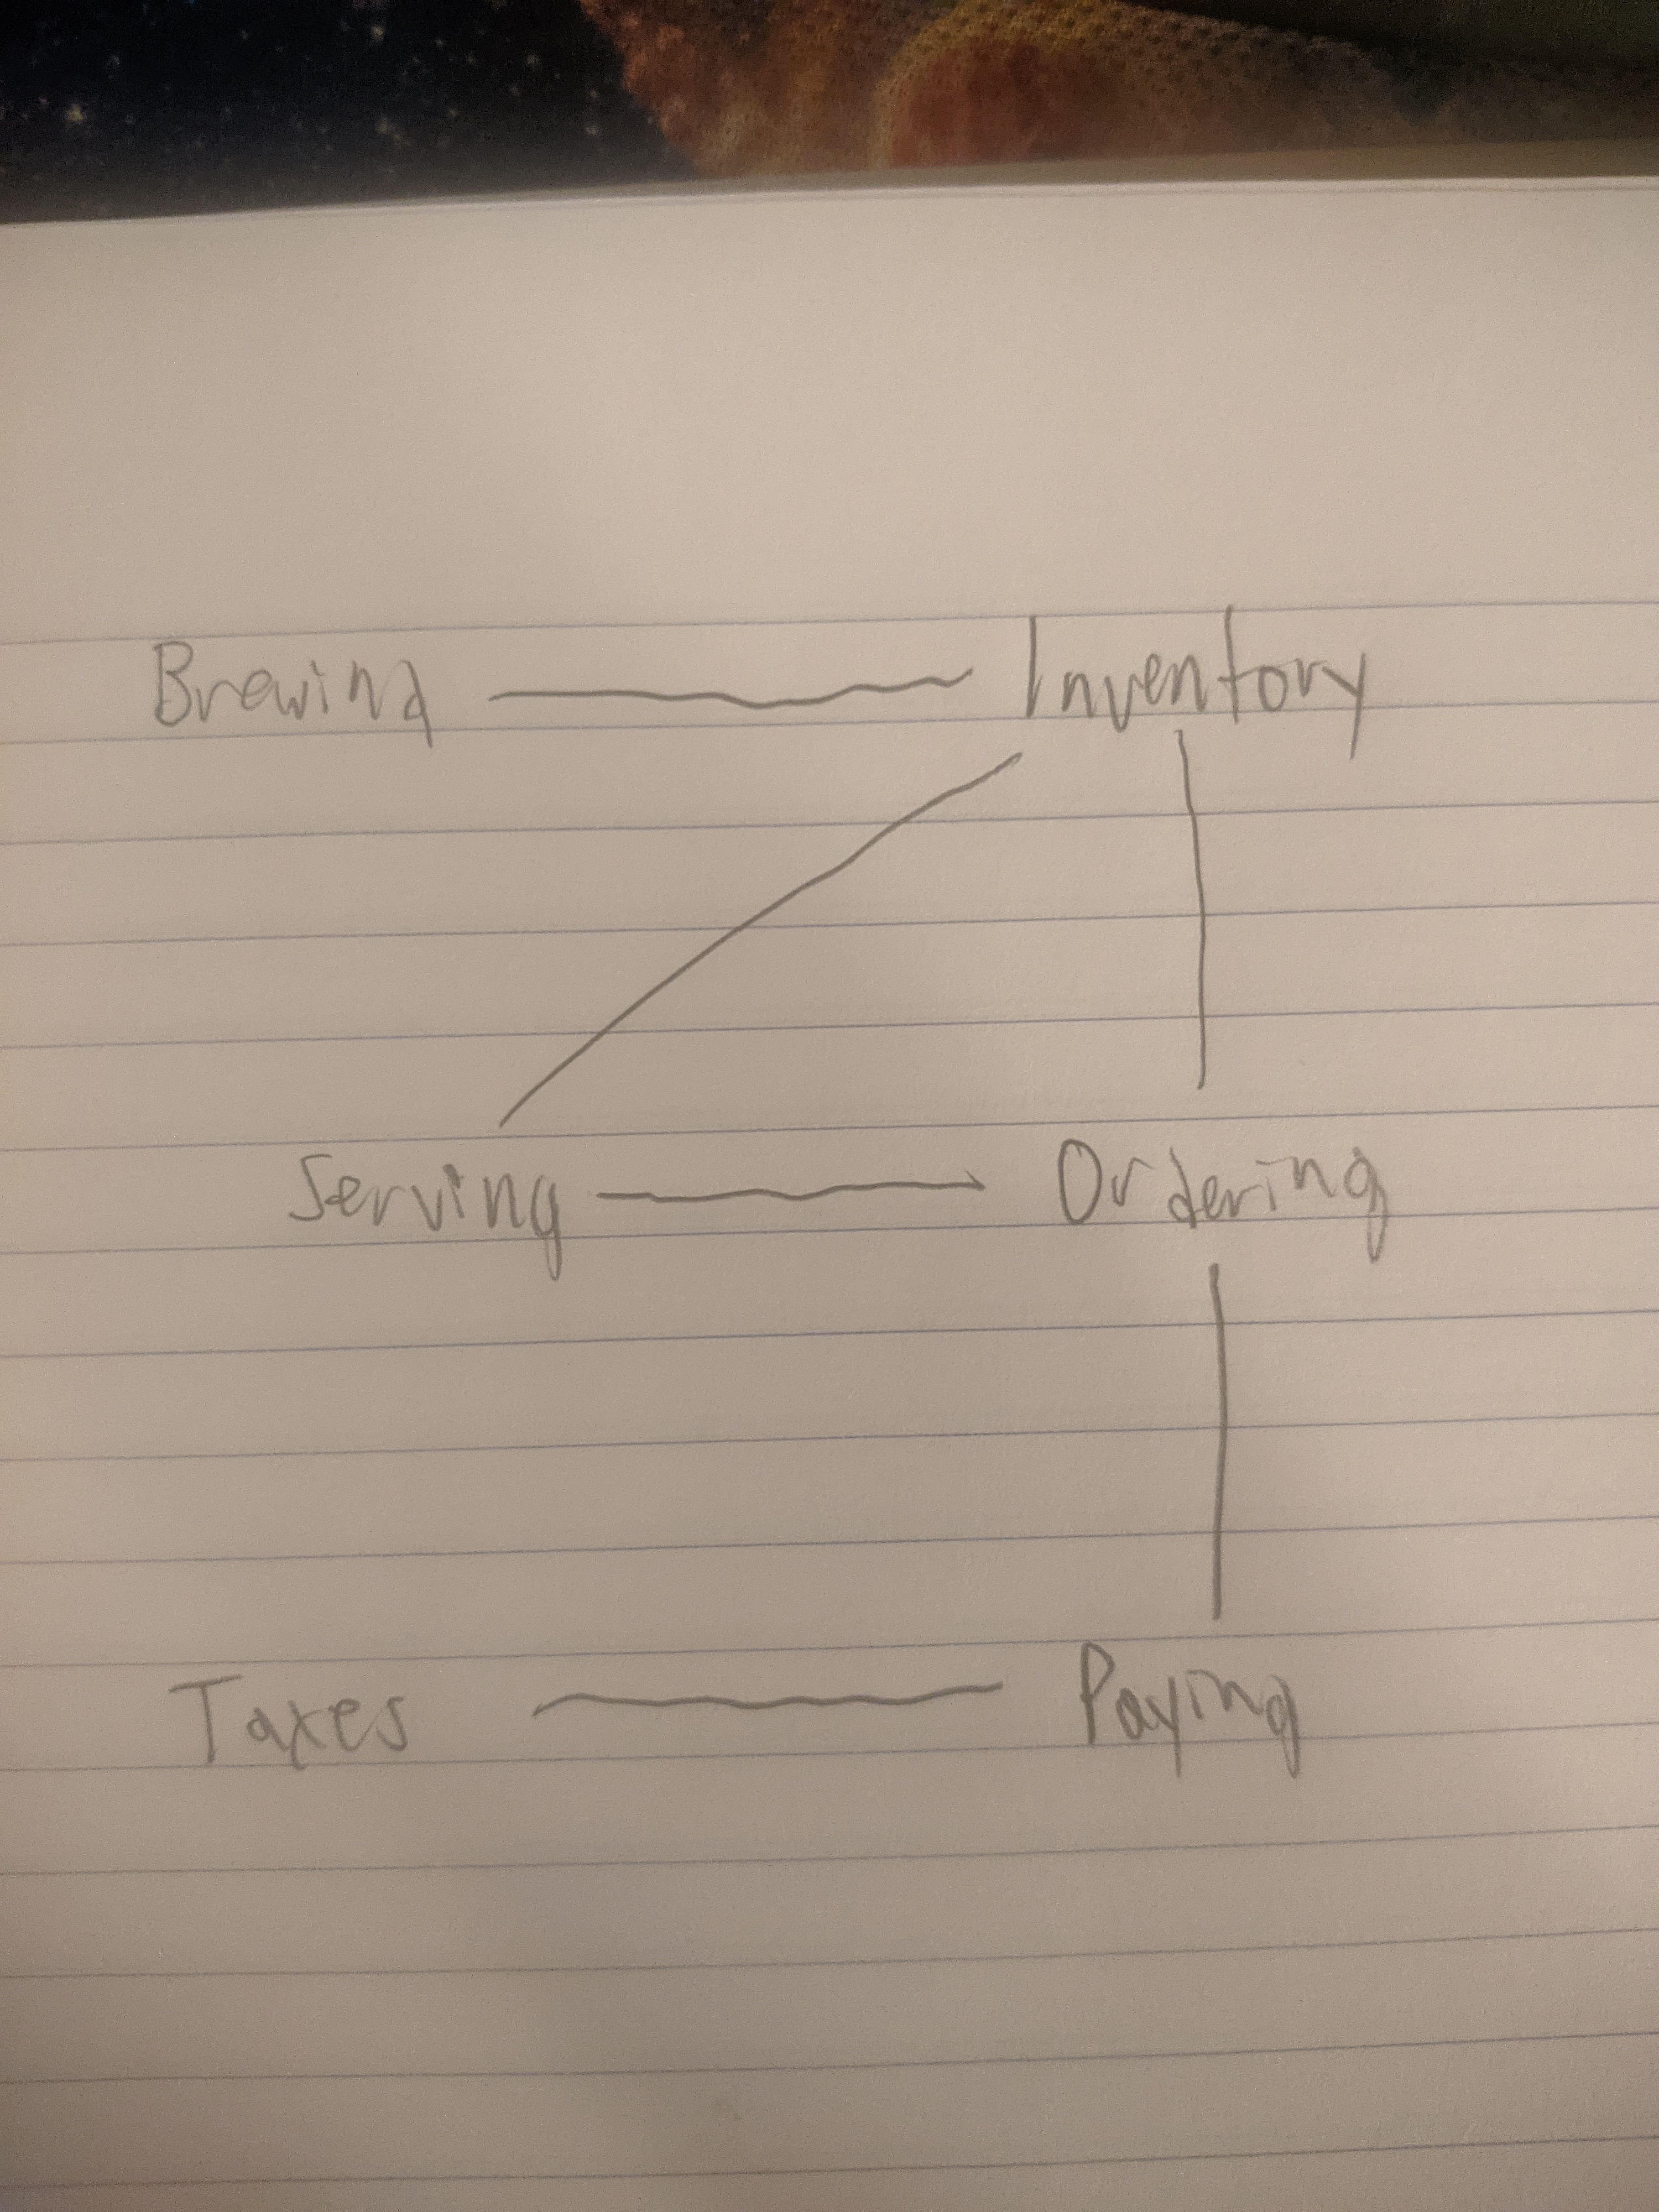 Brewing Inventory
Serving Ordering
Taxes Paying